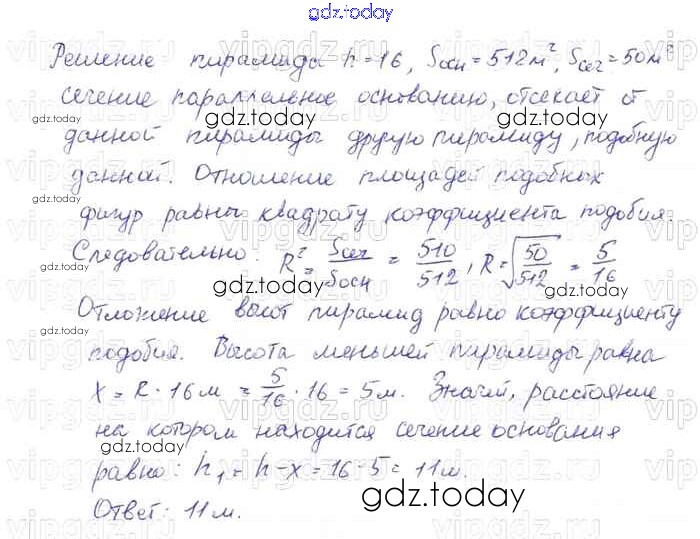 gdz.today
Решение пирамида h=16, Sосн=512м², Sсеч=50м²
сечение параллельное основанию, отсекает от
gdz.today
gdz.today
данной пирамиды другую пирамиду, подобную
данной. Отношение площадей подобных
gdz.today
фигур равны квадрату коэффициента подобия.
Следовательно: R² = Sсеч/Sосн = 510/512, R = √50/512 = 5/16
gdz.today
gdz.today
Отложение высот пирамид равно коэффициенту
gdz.today
подобия. Высота меньшей пирамиды равна
x = R · 16 м = 5/16 · 16 = 5 м. Значит, расстояние
на котором находится сечение основания
gdz.today
равно: h₁ = h - x = 16 - 5 = 11 м.
gdz.today
Ответ: 11 м.